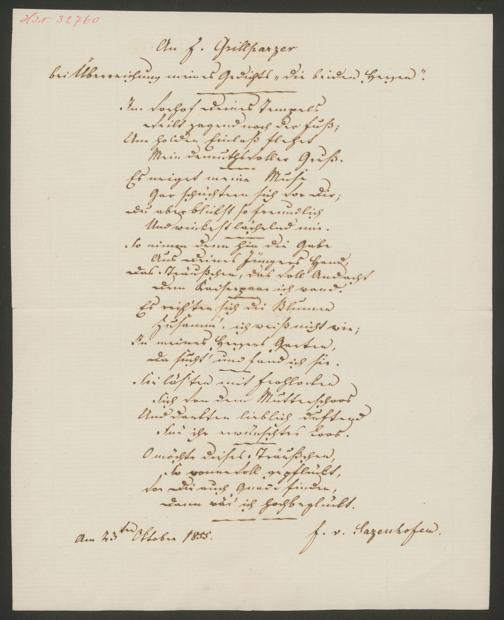 HIN 32760
An F. Grillparzer
bei Überreichung meines Gedichts „die beiden Herzen“.
Im Vorhof deines Tempels
Weilt zagend noch der Fuß;
Um holden Einlaß flehet
Mein demuthsvoller Gruß.
Es neiget meine Muse
Gar schüchtern sich vor dir;
Du aber blickst so freundlich
Und winkest lächelnd mir.
So nimm denn hin die Gabe
Aus deines Jüngers Hand,
Das Sträußchen, das voll Andacht
Dem Kaiserpaar ich wand.
Es reih'ten sich die Blumen
Zusamm', ich weiß nicht wie;
In meines Herzens Garten,
Da sucht' und fand ich sie.
Sie lös'ten mit Frohlocken
Sich von dem Mutterschoos
Und dankten lieblich duftend
Für ihr erwünschtes Loos.
O möchte dieses Sträußchen,
So wonnevoll gepflückt,
Vor dir auch Gnade finden,
Dann wär' ich hochbeglückt.
Am 23ten Oktober 1855.
F. v. Sazenhofen.